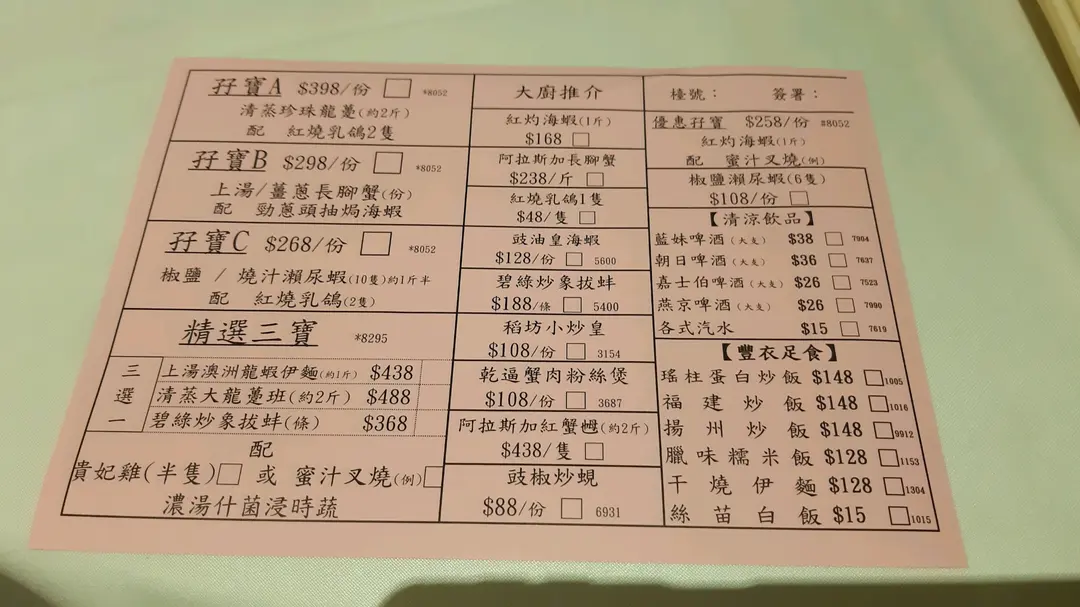 孖寶A $398/份 □ *8052
清蒸珍珠龍躉(約2斤)
配 紅燒乳鴿2隻
孖寶B $298/份 □ *8052
上湯/薑蔥長腳蟹(份)
配 勁蔥頭抽焗海蝦
孖寶C $268/份 □ *8052
椒鹽 / 燒汁瀨尿蝦(10隻)約1斤半
配 紅燒乳鴿(2隻)
精選三寶 *8295
三選一
上湯澳洲龍蝦伊麵(約1斤) $438
清蒸大龍躉班(約2斤) $488
碧綠炒象拔蚌(條) $368
配
貴妃雞(半隻)□ 或 蜜汁叉燒(例)□
濃湯什菌浸時蔬
大廚推介
紅灼海蝦(1斤)
$168 □
阿拉斯加長腳蟹
$238/斤 □
紅燒乳鴿1隻
$48/隻 □
豉油皇海蝦
$128/份 □ 5600
碧綠炒象拔蚌
$188/條 □ 5400
稻坊小炒皇
$108/份 □ 3154
乾逼蟹肉粉絲煲
$108/份 □ 3687
阿拉斯加紅蟹乸(約2斤)
$438/隻 □
豉椒炒蜆
$88/份 □ 6931
檯號： 簽署：
優惠孖寶 $258/份 #8052
紅灼海蝦(1斤)
配 蜜汁叉燒(例)
椒鹽瀨尿蝦(6隻)
$108/份 □
【清涼飲品】
藍妹啤酒(大支) $38 □ 7904
朝日啤酒(大支) $36 □ 7637
嘉士伯啤酒(大支) $26 □ 7523
燕京啤酒(大支) $26 □ 7990
各式汽水 $15 □ 7619
【豐衣足食】
瑤柱蛋白炒飯 $148 □1005
福建炒飯 $148 □1016
揚州炒飯 $148 □9912
臘味糯米飯 $128 □1153
干燒伊麵 $128 □1304
絲苗白飯 $15 □1015